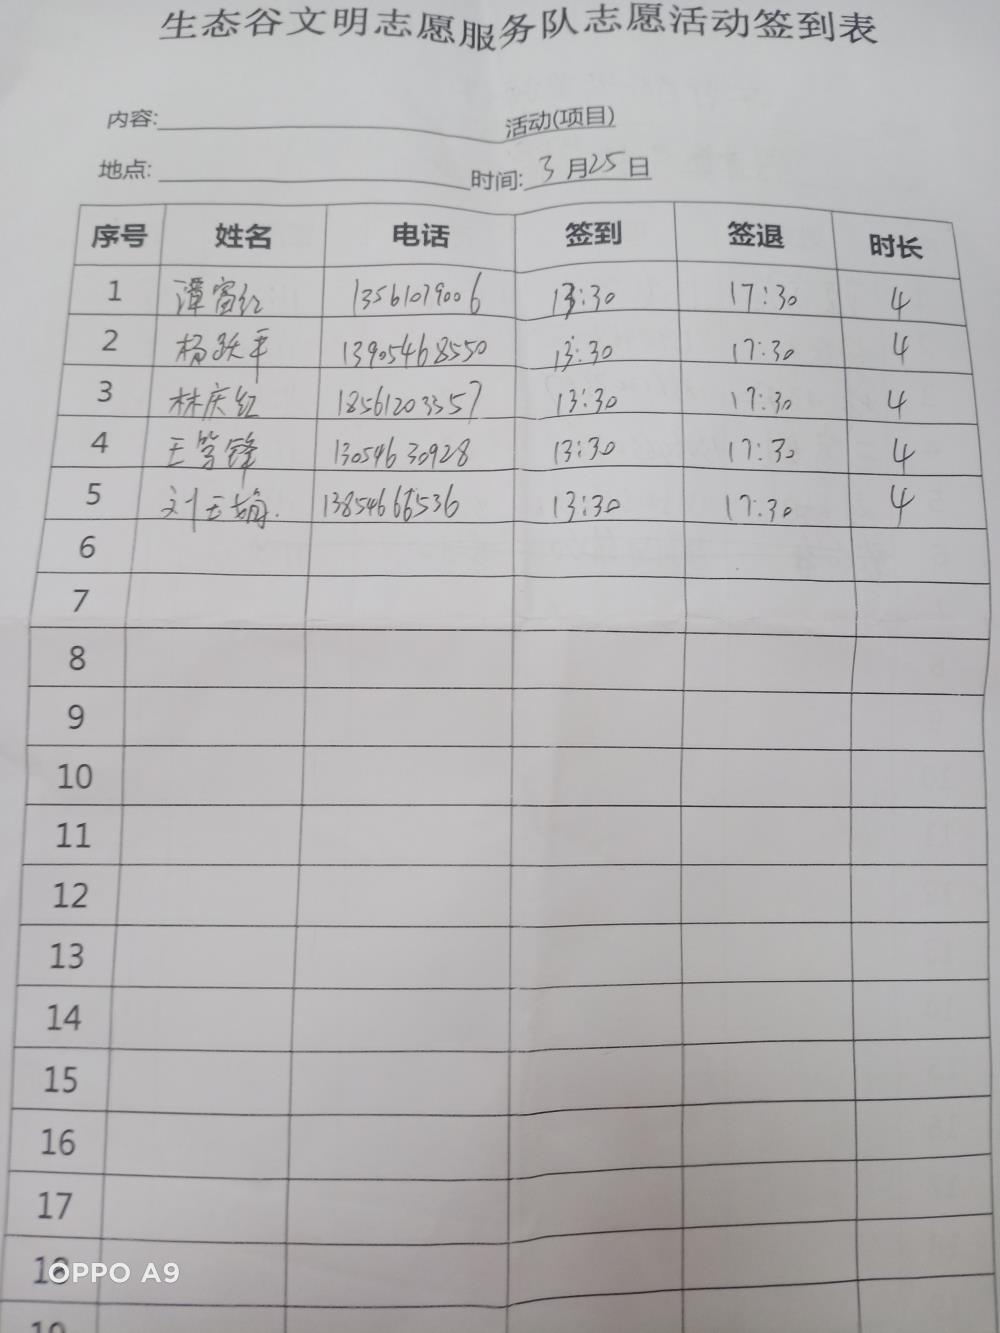 生态谷文明志愿服务队志愿活动签到表
内容: 活动(项目)
地点: 时间: 3月25日
序号 姓名 电话 签到 签退 时长
1 潭富红 13561079006 13:30 17:30 4
2 杨跃平 13905468550 13:30 17:30 4
3 林庆红 18561203357 13:30 17:30 4
4 王笃锋 13054630928 13:30 17:30 4
5 刘玉娟. 13854666536 13:30 17:30 4
6
7
8
9
10
11
12
13
14
15
16
17
18
19
OPPO A9